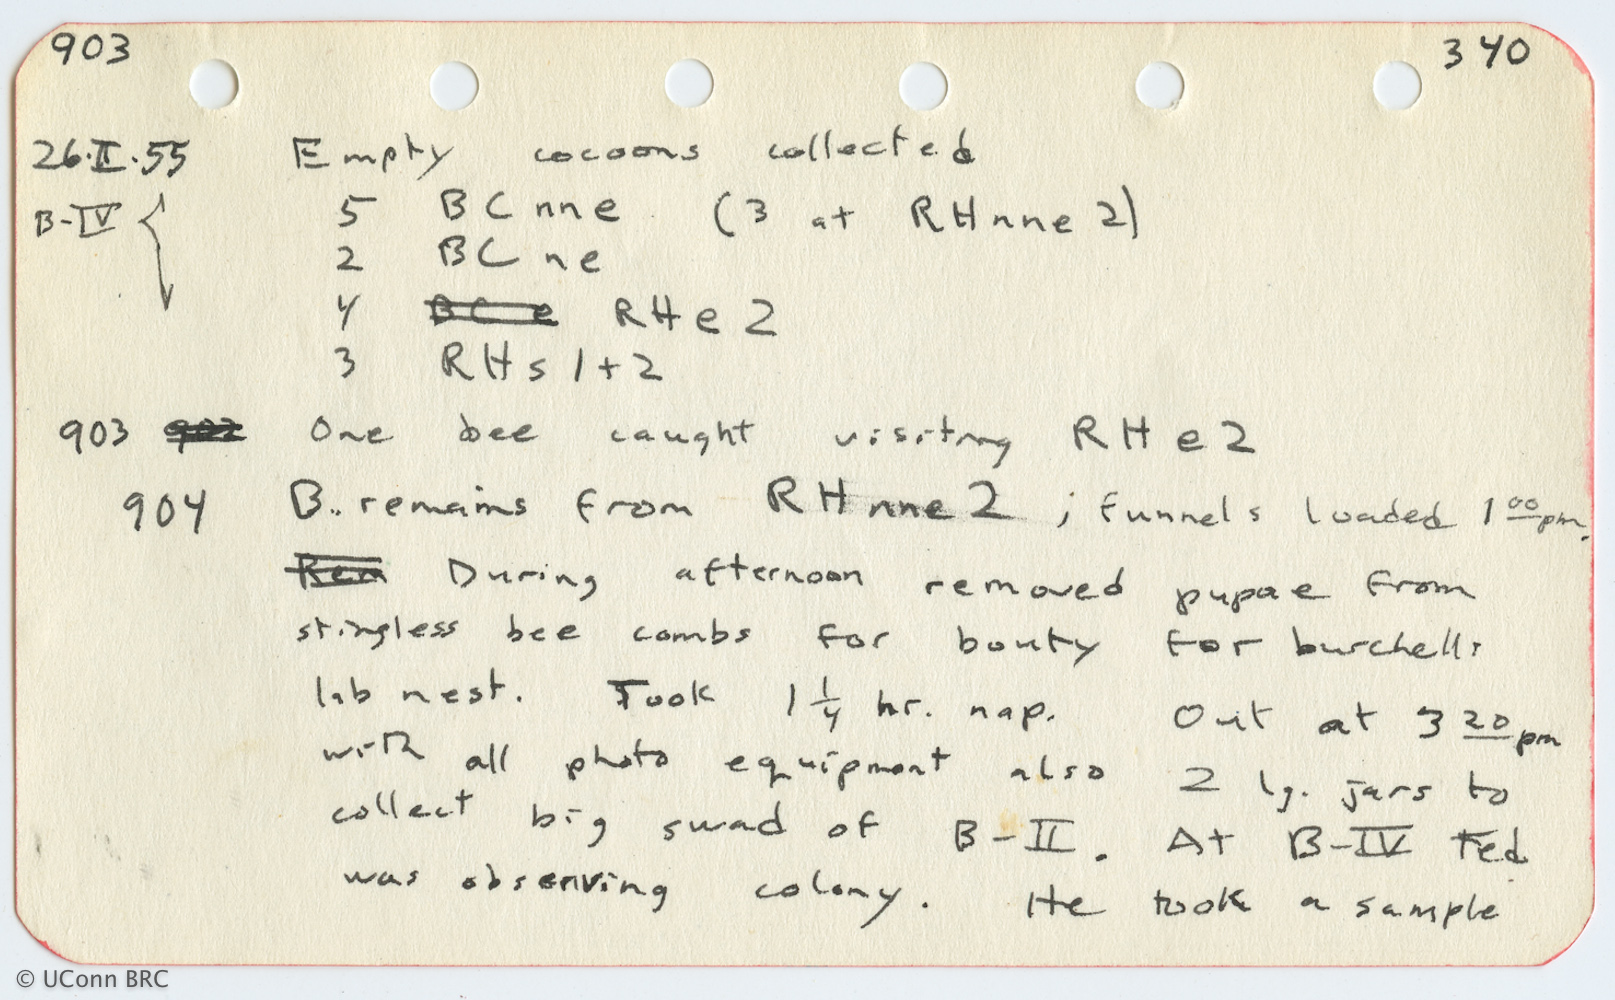 903 340
26·II·55 Empty cocoons collected
B-IV 5 BC nne (3 at RHnne2)
2 BC ne
4 BC e RHe2
3 RHs 1+2
903 902 One bee caught visiting RHe2
904 B.. remains from RHnne2 ; funnels loaded 1 00 pm.
Rem During afternoon removed pupae from
stingless bee combs for bouty for burchelli
lab nest. Took 1 1/4 hr. nap. Out at 3 20 pm
with all photo equipment also 2 lg. jars to
collect big swad of B-II. At B-IV Ted
was observing colony. He took a sample
© UConn BRC